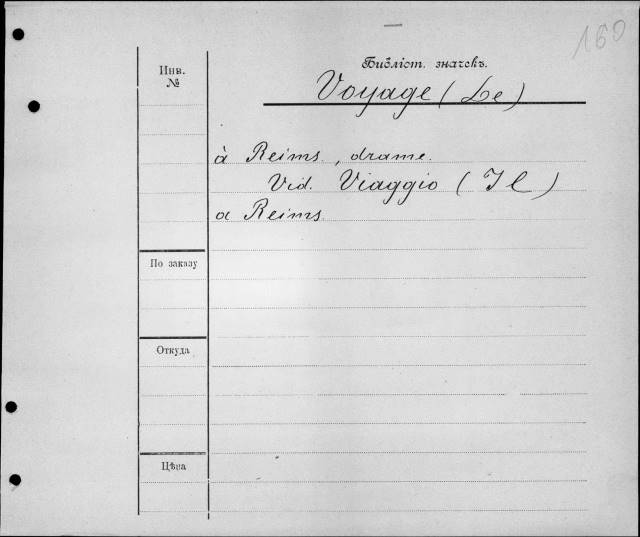 160
Инв.
№
Библіот. значекъ.
Voyage (Le)
à Reims, drame.
Vid. Viaggio (Il)
a Reims.
По заказу
Откуда
Цѣна